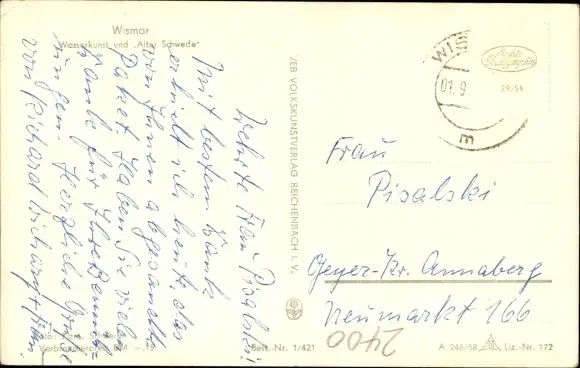 Wismar
Wasserkunst und „Alter Schwede"
Werte Frau Pisalski!
Mit bestem Dank
erhielt ich heute das
von Ihnen abgesandte
Paket. Haben Sie vielen
Dank für Ihre Bemüh-
ungen. Herzliche Grüße
von Richard
VEB VOLKSKUNSTVERLAG REICHENBACH I. V.
Best.-Nr. 1/421
Echte Photographie
29/58
WIS
01. 9
m
Frau
Pisalski
Geyer-Kr. Annaberg
Neumarkt 166
2400
A 246/58 Liz.-Nr. 172